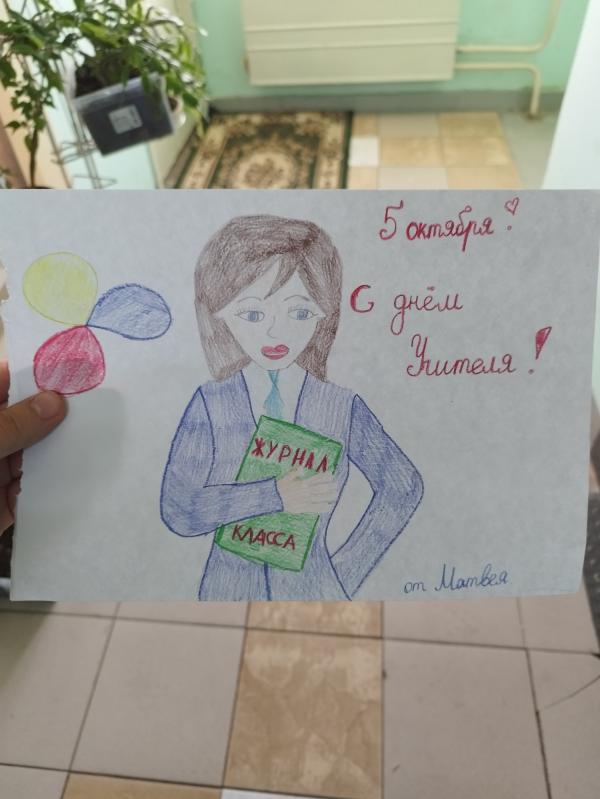 5 октября!
С днём
Учителя!
ЖУРНАЛ
КЛАССА
от Матвея